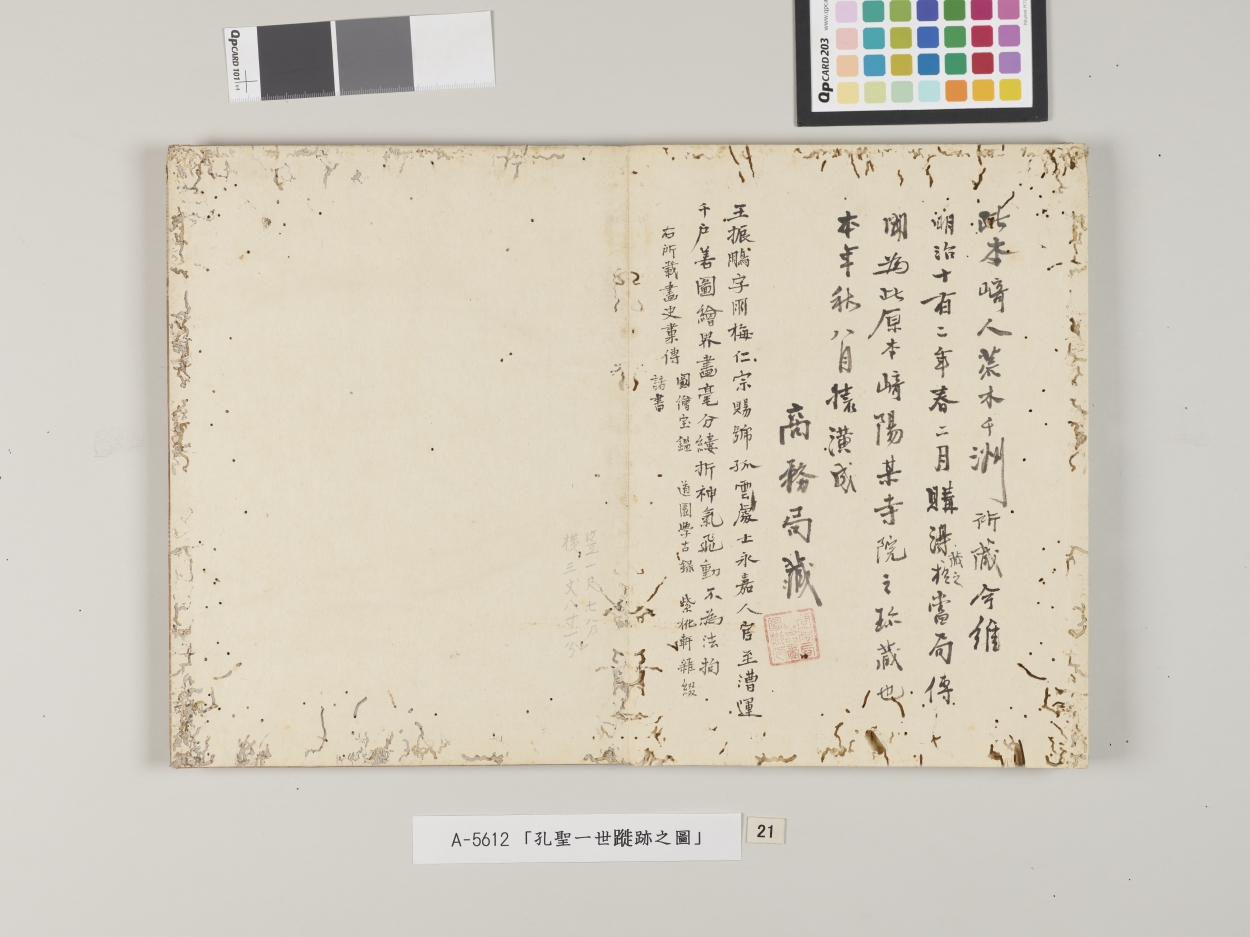 此本﨑人荒木千洲所蔵今維
明治十有二年春二月購得蔵之於當局傳
聞為此原本﨑陽某寺院之珎蔵也
本年秋八月裱潢成
商務局藏
王振鵬字朋梅仁宗賜號孤雲處士永嘉人官至漕運
千戸善圖繪界畫毫分縷折神氣飛動不為法拘
右所載畫史彙傳 圖繪宝鑑 道園學古録 紫桃軒雜綴
諸書
竪一尺七分
横三丈八寸一分
QpCARD 101
QpCARD 203
A-5612「孔聖一世蹝跡之圖」
21